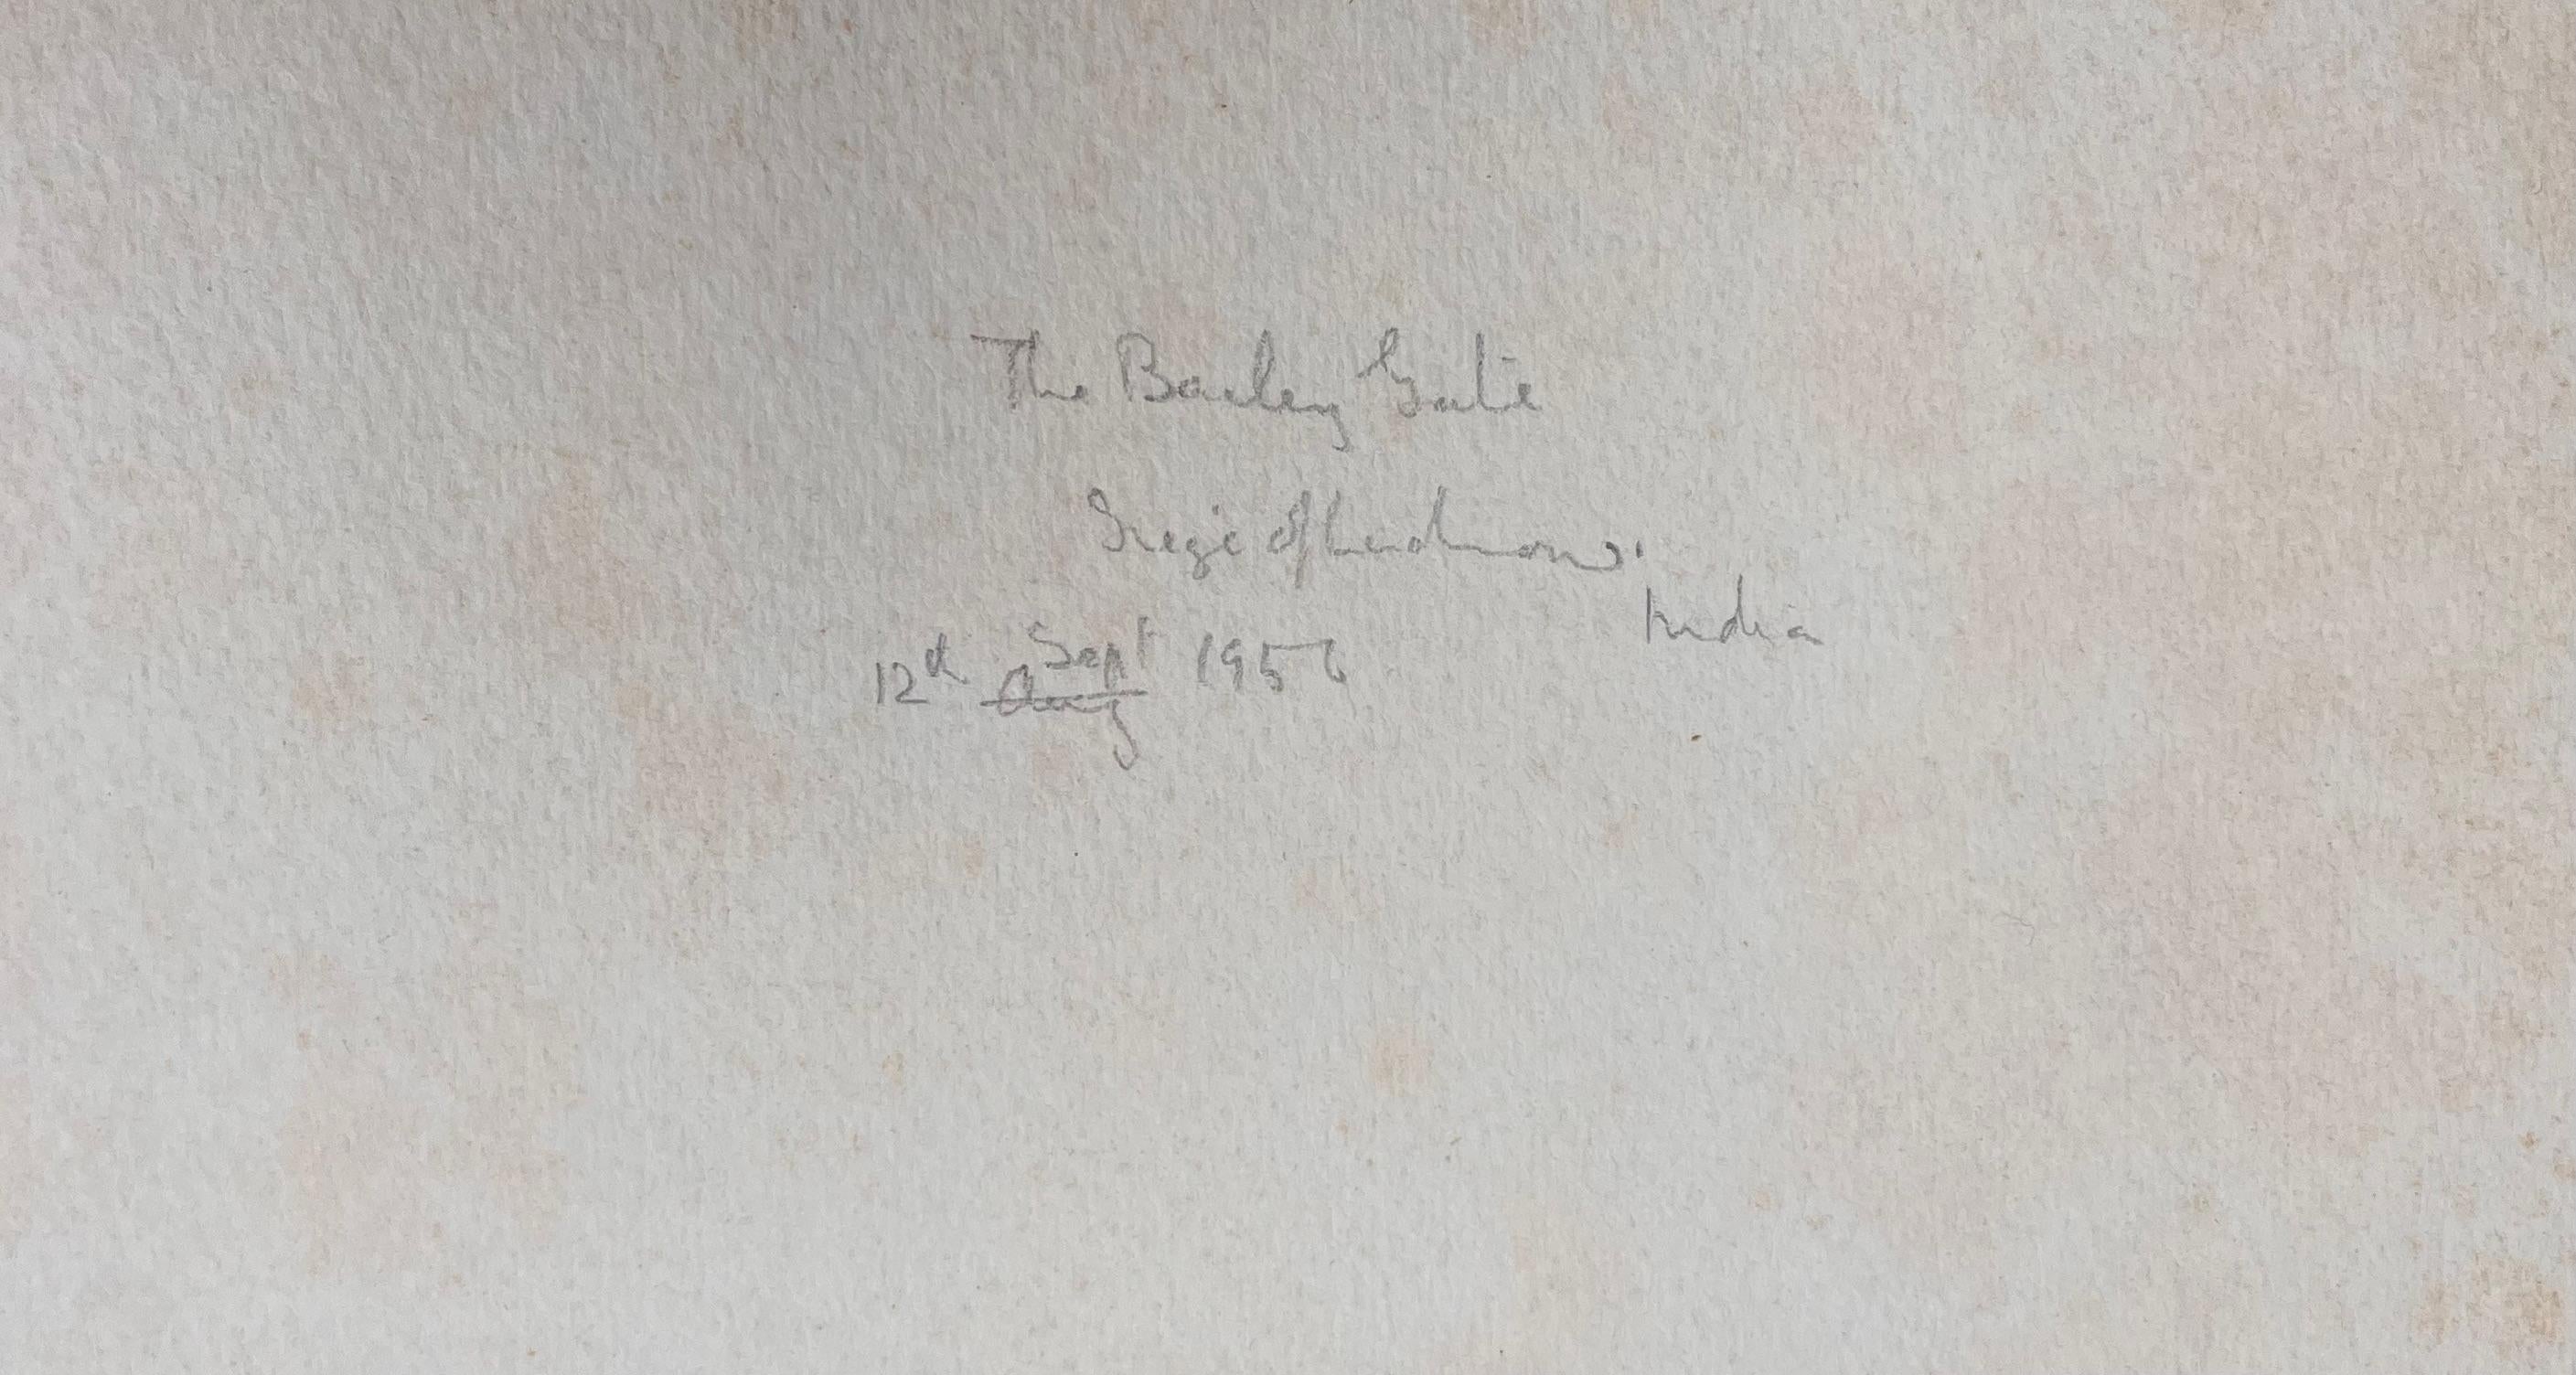 The Bailey Gate
Siege of Lucknow.
India
12th Aug Sept 1956